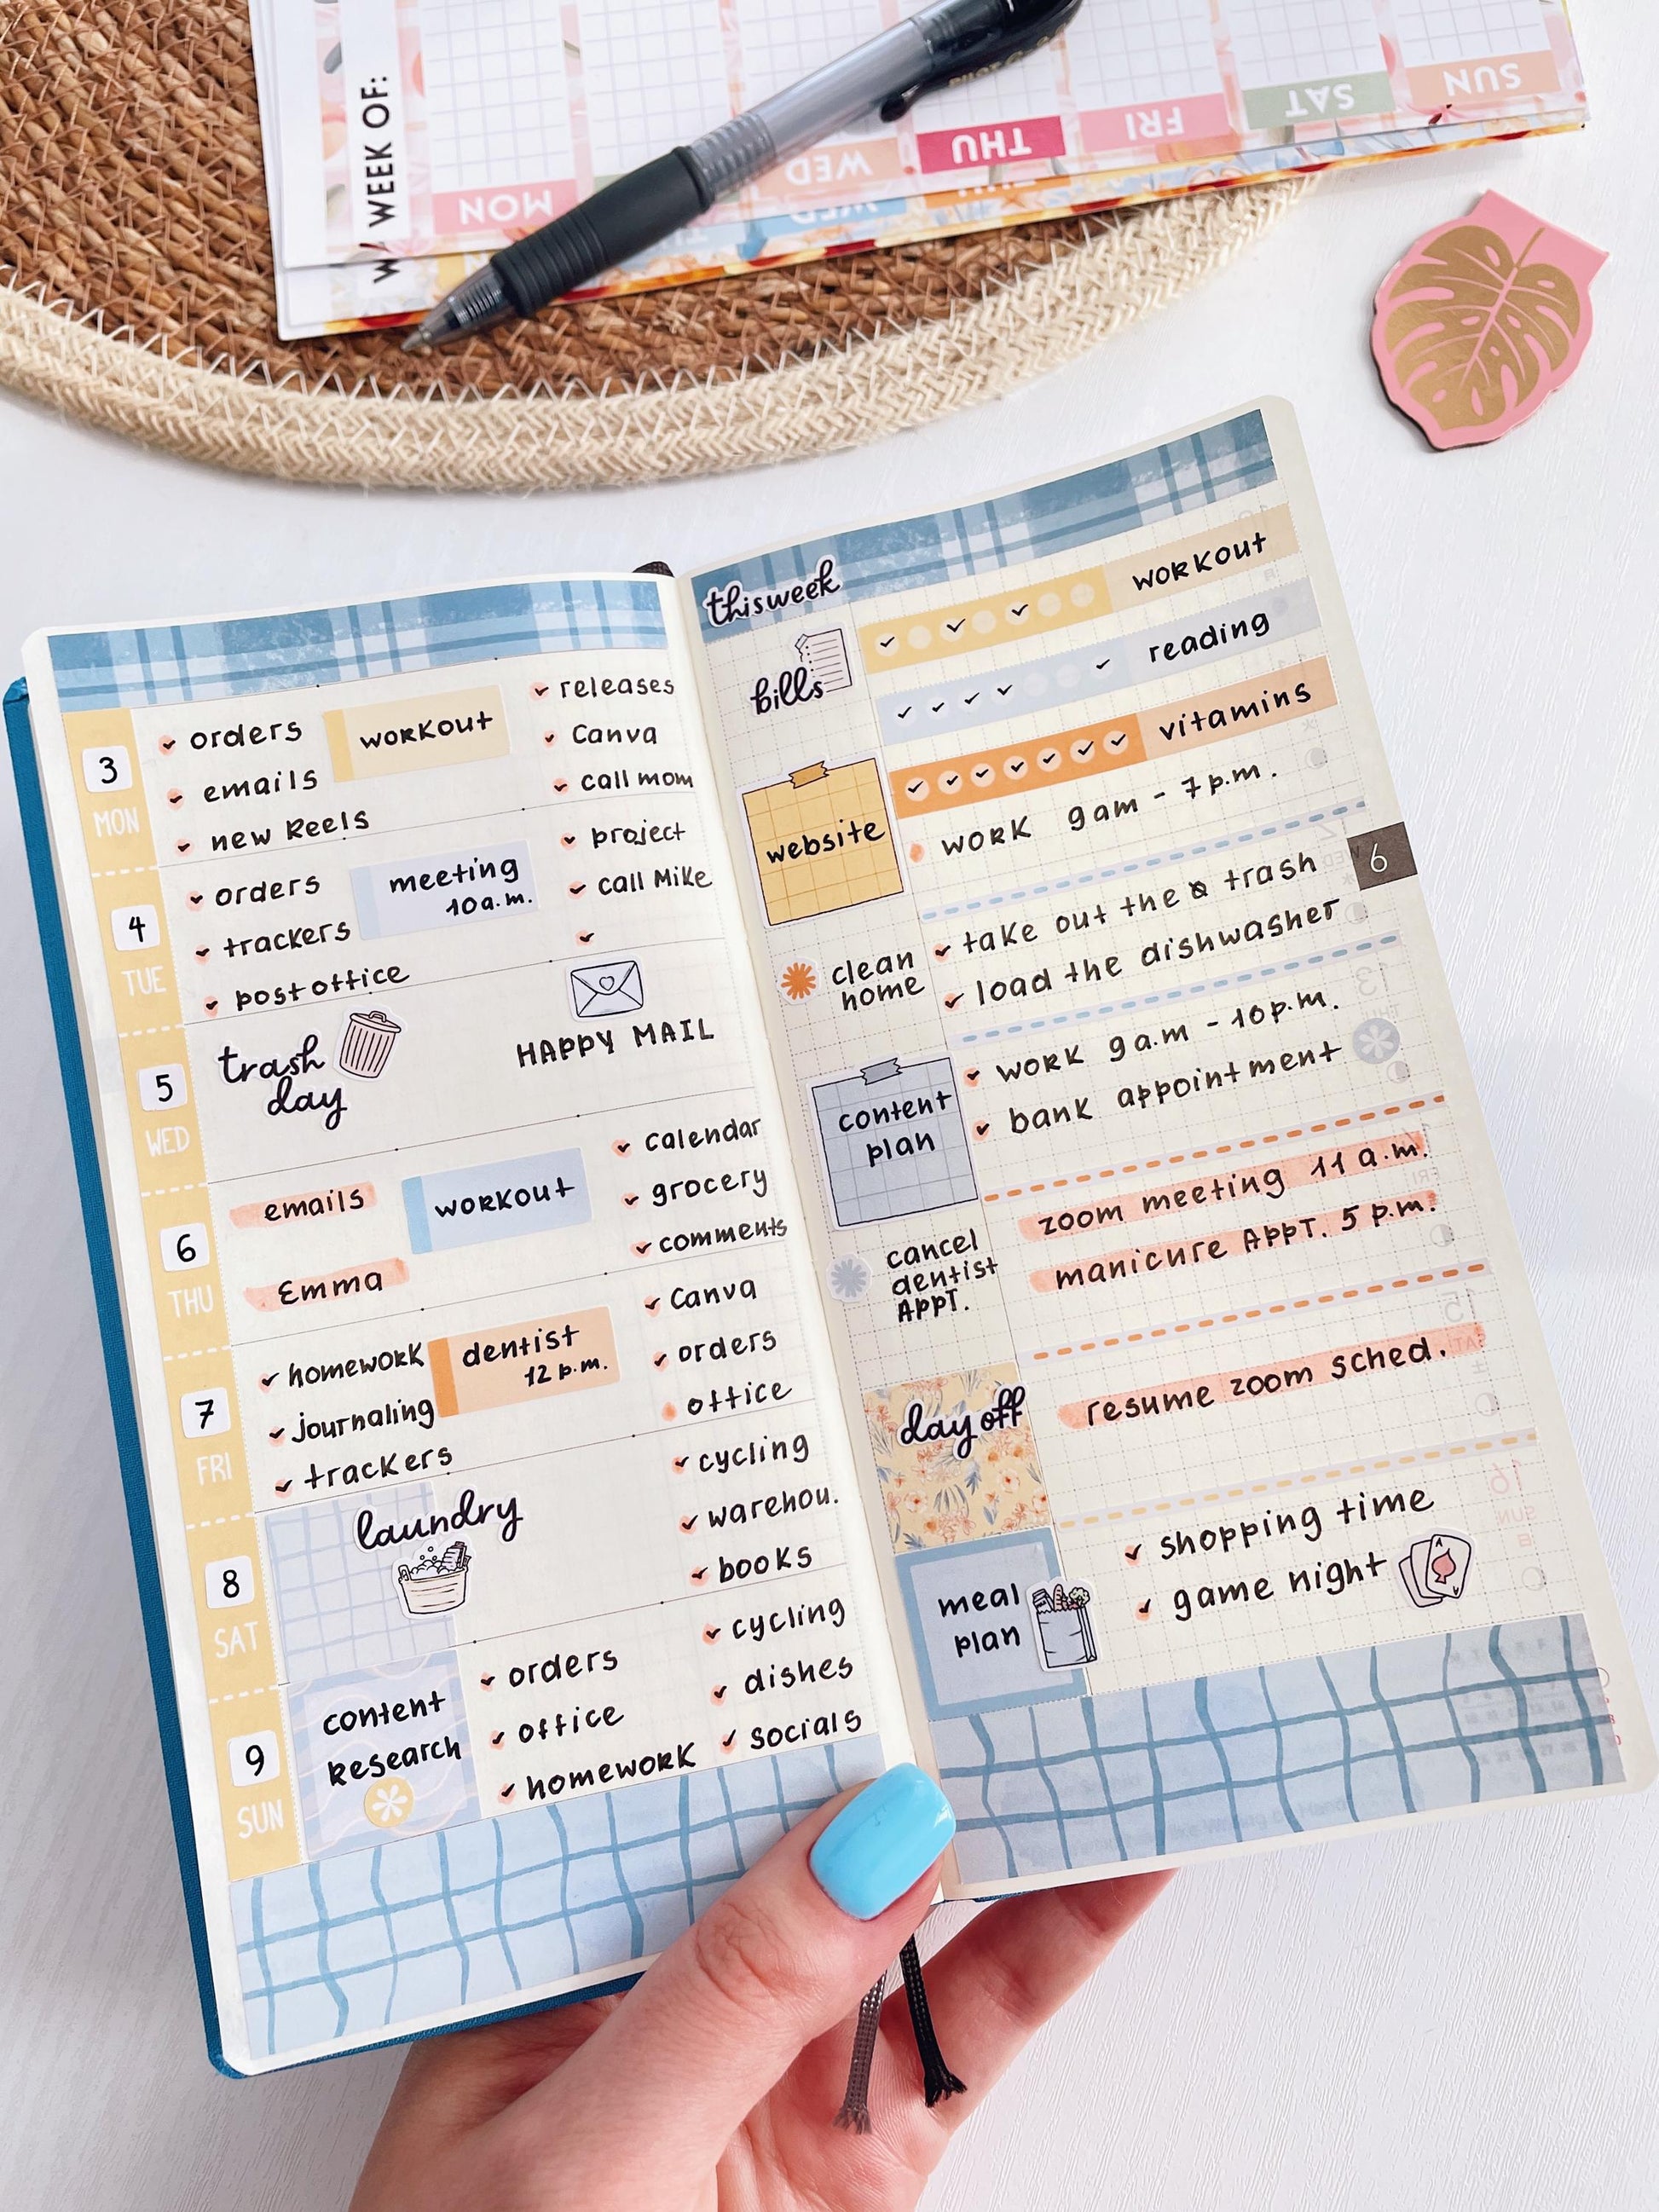 WEEK OF:
MON
WED
THU
FRI
SAT
SUN
WED
3
MON
orders
emails
new Reels
workout
releases
Canva
call mom
4
TUE
orders
trackers
post office
meeting
10 a.m.
project
call Mike
5
WED
trash
day
HAPPY MAIL
6
THU
emails
Emma
workout
calendar
grocery
comments
7
FRI
homework
journaling
trackers
dentist
12 p.m.
Canva
orders
office
8
SAT
laundry
cycling
warehou.
books
9
SUN
content
research
orders
office
homework
cycling
dishes
socials
this week
bills
website
clean
home
content
plan
cancel
dentist
APPT.
day off
meal
plan
workout
reading
vitamins
work 9am - 7p.m.
6
take out the trash
load the dishwasher
work 9a.m - 10p.m.
bank appointment
zoom meeting 11 a.m.
manicure APPT. 5 p.m.
resume zoom sched.
shopping time
game night
A